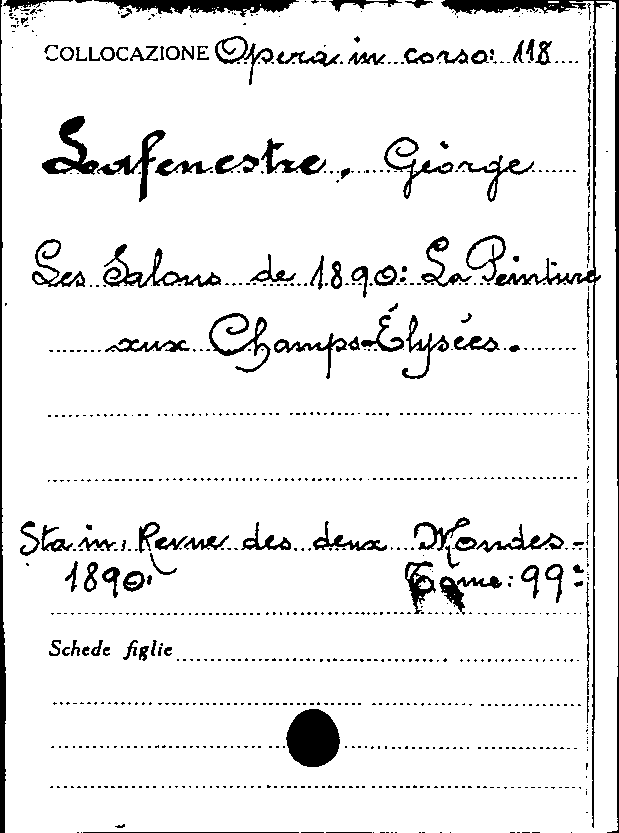 COLLOCAZIONE Opera in corso: 118
Lafenestre, George
Les Salons de 1890: La Peinture
aux Champs-Élysées.
Sta in: Revue des deux Mondes -
1890. Tome: 99º
Schede figlie